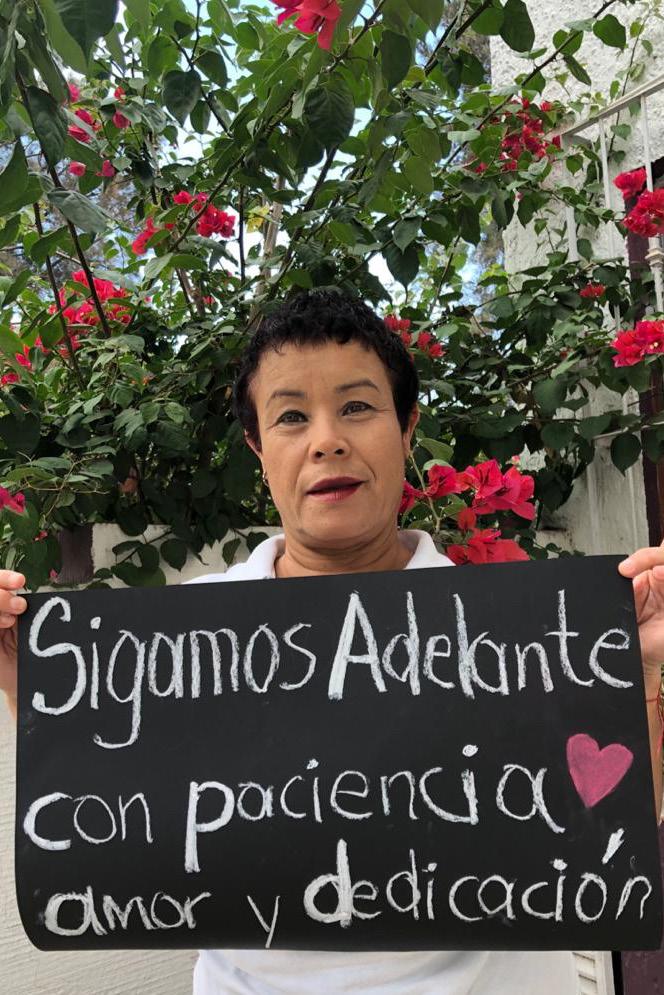 Sigamos Adelante
con paciencia
amor y dedicación